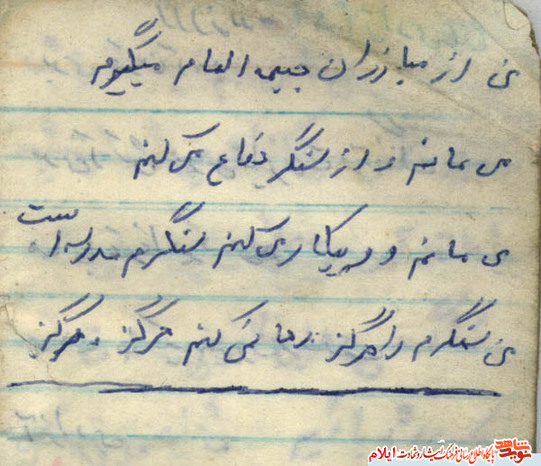 من از مبارزان جبهه الهام میگیرم
می مانم و از سنگر دفاع می کنم
می مانم و پیکار می کنم سنگرم مدرسه است
من سنگرم را هرگز رها نمی کنم هرگز، هرگز
نوید شاهد
پایگاه اطلاع رسانی فرهنگ ایثار و شهادت ایلام